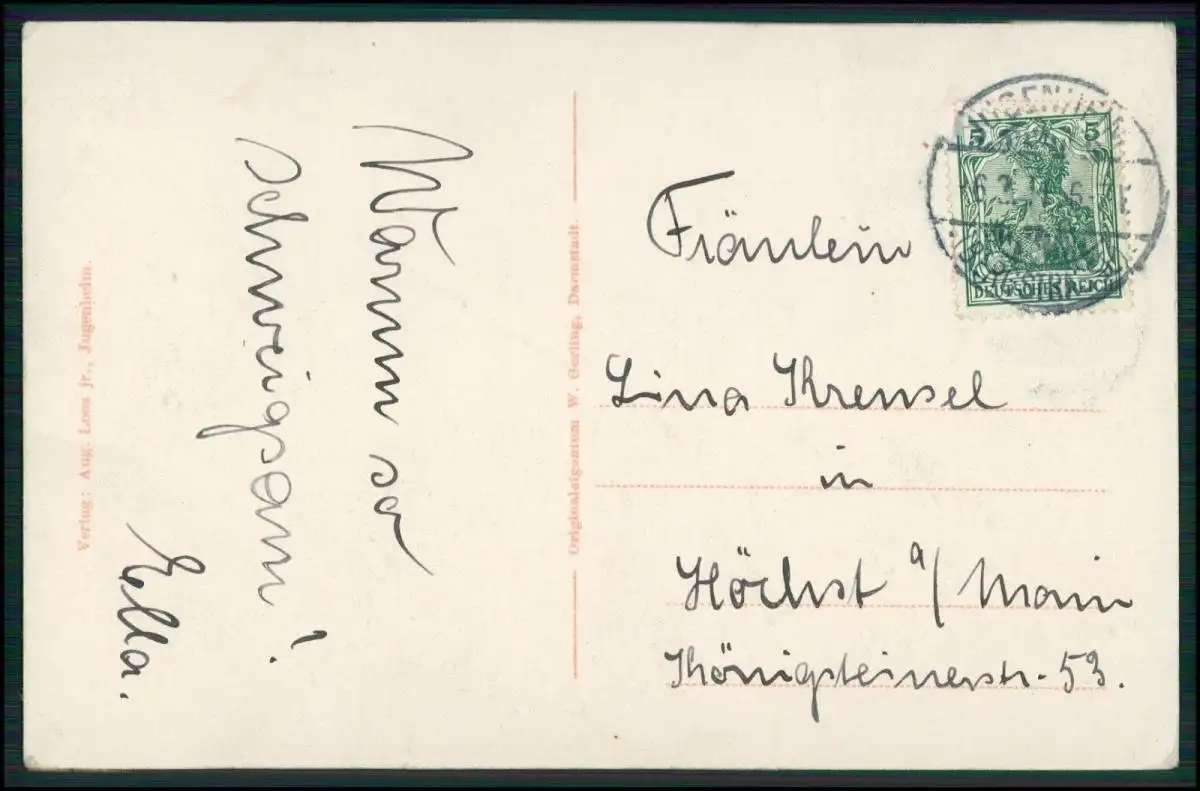 Warum so
schweigsam?
Ella.
Verlag: Aug. Loos jr., Jugenheim.
Originaleigentum W. Gerling, Darmstadt.
5 5
DEUTSCHES REICH
Fräulein
Lina Krensel
in
Höchst a/Main
Königsteinerstr. 53.